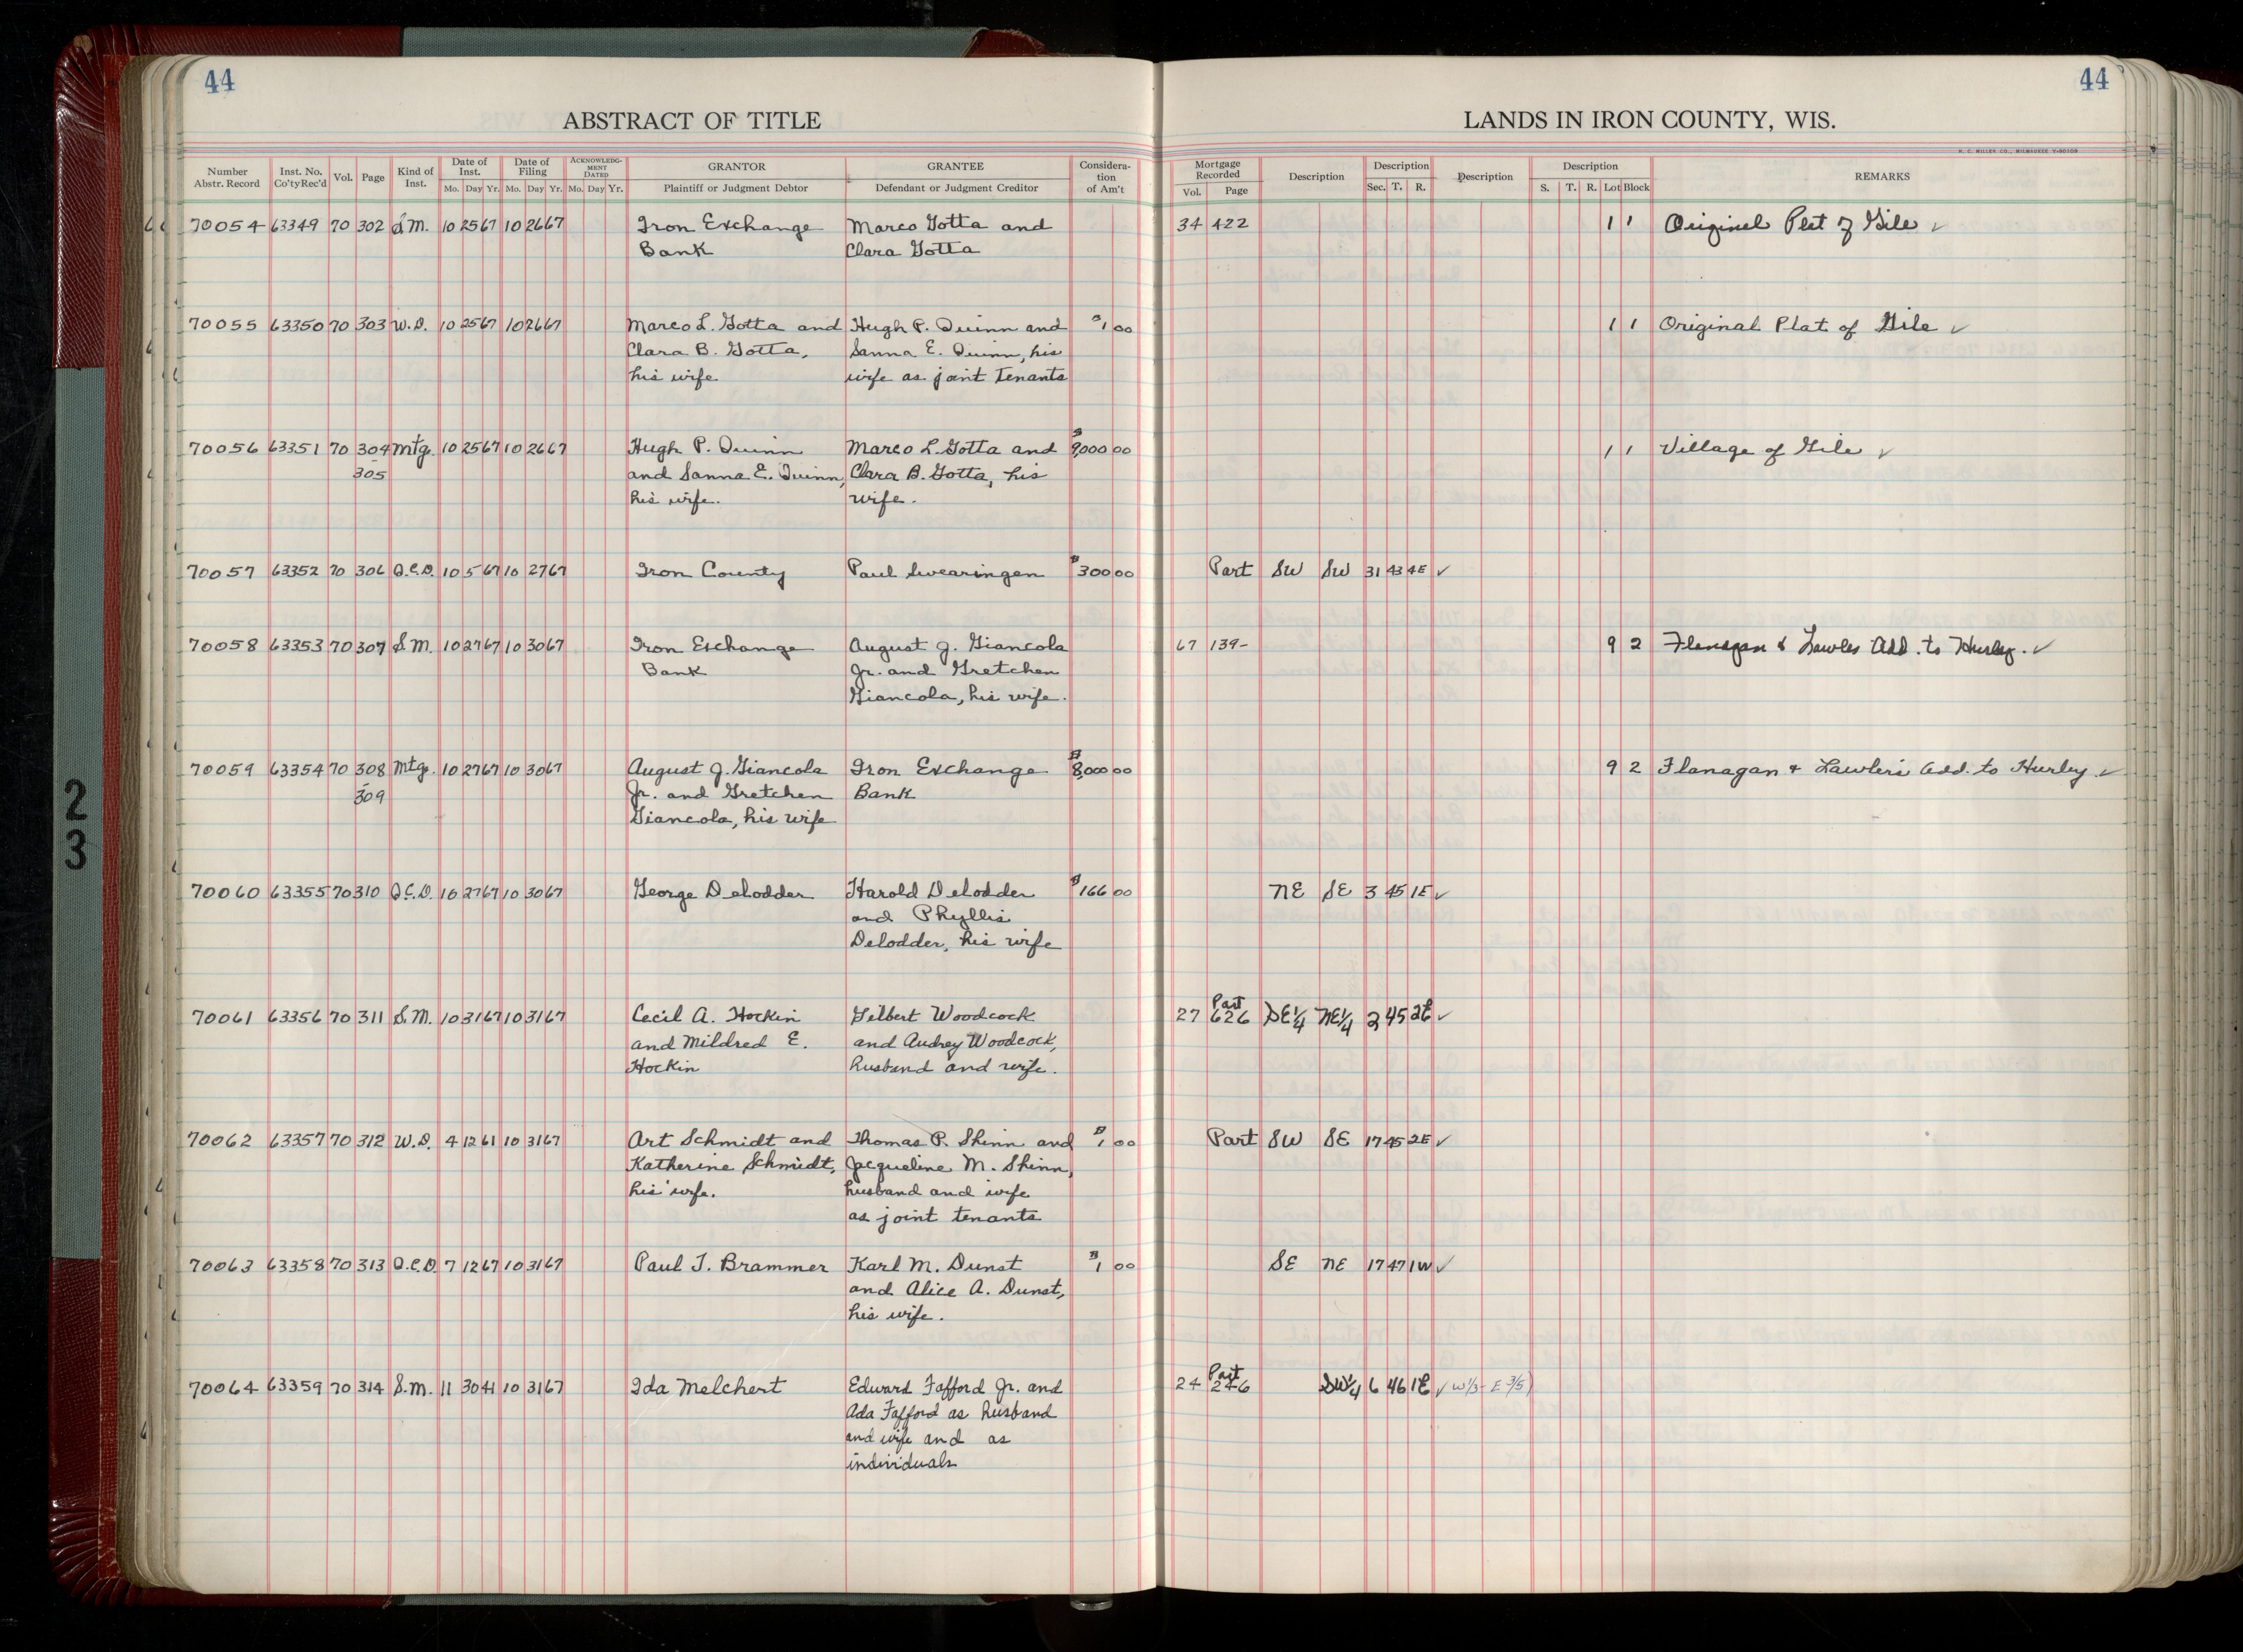 44
44
ABSTRACT OF TITLE
LANDS IN IRON COUNTY, WIS.
H. C. MILLER CO., MILWAUKEE
Number Abstr. Record Inst. No. Co'ty Rec'd Vol. Page Kind of Inst. Date of Inst. Mo. Day Yr. Date of Filing Mo. Day Yr. ACKNOWLEDGMENT DATED Mo. Day Yr. GRANTOR Plaintiff or Judgment Debtor GRANTEE Defendant or Judgment Creditor Consideration of Am't
Mortgage Recorded Vol. Page Description Description Sec. T. R. Description Description S. T. R. Lot Block REMARKS
70054 63349 70 302 S.M. 10 25 67 10 26 67 Iron Exchange Marco Gotta and 34 422 1 1 Original Plat of Gile ✓
Bank Clara Gotta
70055 63350 70 303 W.D. 10 25 67 10 26 67 Marco L. Gotta and Hugh P. Quinn and $1 00 1 1 Original Plat of Gile ✓
Clara B. Gotta, Sanna E. Quinn, his
his wife. wife as joint tenants
70056 63351 70 304 Mtg. 10 25 67 10 26 67 Hugh P. Quinn Marco L. Gotta and $9,000 00 1 1 Village of Gile ✓
305 and Sanna E. Quinn, Clara B. Gotta, his
his wife. wife.
70057 63352 70 306 Q.C.D. 10 5 67 10 27 67 Iron County Paul Swearingen $300 00 Part SW SW 31 43 4E ✓
70058 63353 70 307 S.M. 10 27 67 10 30 67 Iron Exchange August J. Giancola 67 139- 9 2 Flanagan & Lawles Add. to Hurley. ✓
Bank Jr. and Gretchen
Giancola, his wife.
70059 63354 70 308 Mtg. 10 27 67 10 30 67 August J. Giancola Iron Exchange $8,000 00 9 2 Flanagan & Lawler's Add. to Hurley ✓
309 Jr. and Gretchen Bank
Giancola, his wife
70060 63355 70 310 Q.C.D. 10 27 67 10 30 67 George Delodder Harold Delodder $166 00 NE SE 3 45 1E ✓
and Phyllis
Delodder, his wife
70061 63356 70 311 S.M. 10 31 67 10 31 67 Cecil A. Hockin Gilbert Woodcock 27 626 Part SE1/4 NE1/4 2 45 2E ✓
and Mildred E. and Audrey Woodcock,
Hockin husband and wife.
70062 63357 70 312 W.D. 4 12 61 10 31 67 Art Schmidt and Thomas P. Shinn and $1 00 Part SW SE 17 45 2E ✓
Katherine Schmidt, Jacqueline M. Shinn,
his wife. husband and wife
as joint tenants
70063 63358 70 313 Q.C.D. 7 12 67 10 31 67 Paul T. Brammer Karl M. Dunst $1 00 SE NE 17 47 1W ✓
and Alice A. Dunst,
his wife.
70064 63359 70 314 S.M. 11 30 41 10 31 67 Ida Melchert Edward Fafford Jr. and 24 246 Part SW1/4 6 46 1E ✓ W 1/3 - E 3/5)
Ada Fafford as husband
and wife and as
individuals
2
3